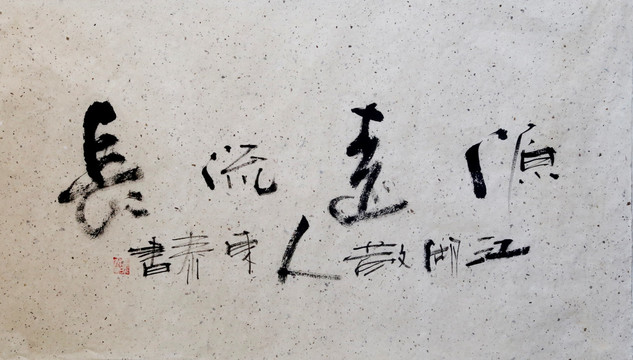 源遠流長
江湖散人東春書